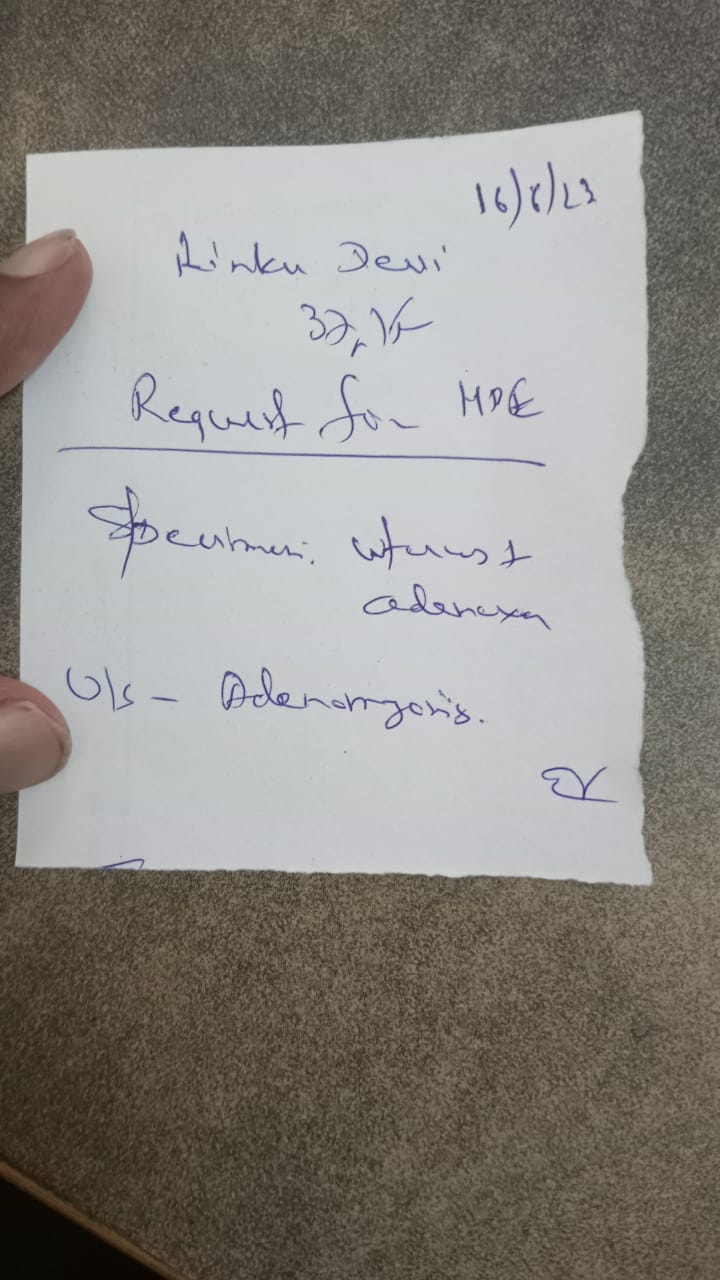 16/8/23
Rinku Devi
32, Yr
Request for HPE
Specimen: uterus +
adenexa
U/s - Adenomyosis.